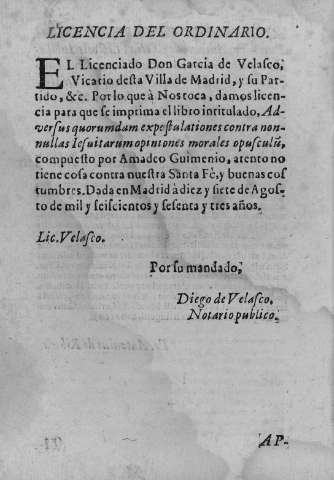 LICENCIA DEL ORDINARIO.
EL Licenciado Don Garcia de Velasco,
Vicario desta Villa de Madrid, y su Par-
tido, &c. Por lo que à Nos toca, damos licen-
cia para que se imprima el libro intitulado, Ad-
versus quorumdam expostulationes contra non-
nullas Iesuitarum opiniones morales opusculũ,
compuesto por Amadeo Guimenio, atento no
tiene cosa contra nuestra Santa Fè, y buenas cos
tumbres. Dada en Madrid à diez y siete de Agos-
to de mil y seiscientos y sesenta y tres años.
Lic. Velasco.
Por su mandado,
Diego de Velasco.
Notario publico.
AP-